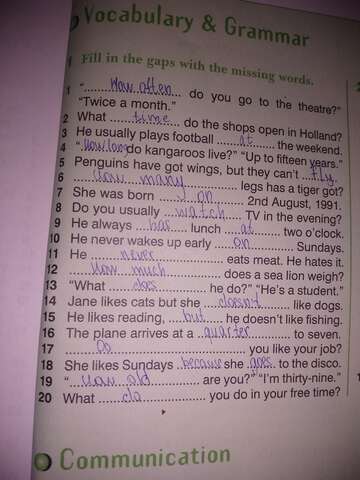 Vocabulary & Grammar
1 Fill in the gaps with the missing words.
1 "......How often...... do you go to the theatre?"
"Twice a month."
2 What ......time...... do the shops open in Holland?
3 He usually plays football ......at...... the weekend.
4 "How long do kangaroos live?" "Up to fifteen years."
5 Penguins have got wings, but they can't ...fly.
6 ......How many...... legs has a tiger got?
7 She was born ......on...... 2nd August, 1991.
8 Do you usually ...watch... TV in the evening?
9 He always ...has... lunch ...at... two o'clock.
10 He never wakes up early ...on... Sundays.
11 He ......never...... eats meat. He hates it.
12 ......How much...... does a sea lion weigh?
13 "What ......does...... he do?" "He's a student."
14 Jane likes cats but she ...doesn't... like dogs.
15 He likes reading, ...but... he doesn't like fishing.
16 The plane arrives at a ...quarter... to seven.
17 ......Do...... you like your job?
18 She likes Sundays because she goes to the disco.
19 "...How old... are you?" "I'm thirty-nine."
20 What ...do... you do in your free time?
Communication